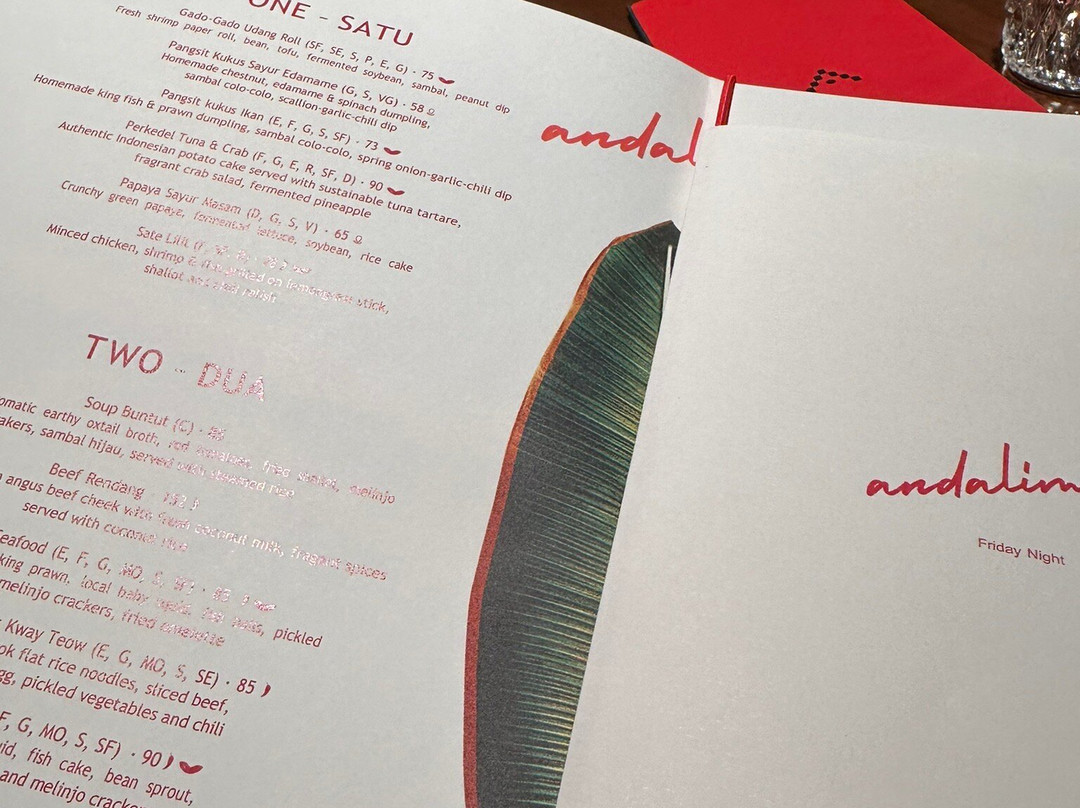 ONE - SATU
Gado-Gado Udang Roll (SF, SE, S, P, E, G) · 75
Fresh shrimp paper roll, bean, tofu, fermented soybean, sambal, peanut dip
Pangsit Kukus Sayur Edamame (G, S, VG) · 58
Homemade chestnut, edamame & spinach dumpling,
sambal colo-colo, scallion-garlic-chili dip
Pangsit kukus Ikan (E, F, G, S, SF) · 73
Homemade king fish & prawn dumpling, sambal colo-colo, spring onion-garlic-chili dip
Perkedel Tuna & Crab (F, G, E, R, SF, D) · 90
Authentic Indonesian potato cake served with sustainable tuna tartare,
fragrant crab salad, fermented pineapple
Papaya Sayur Masam (D, G, S, V) · 65
Crunchy green papaya, fermented lettuce, soybean, rice cake
Sate Lilit
Minced chicken, shrimp & fish grilled on lemongrass stick,
shallot and
TWO - DUA
Soup Buntut (C) ·
earthy oxtail broth, red fried melinjo
sambal hijau, served with steamed rice
Beef Rendang
angus beef cheek with fresh coconut milk, fragrant spices
served with coconut rice
(E, F, G, MO, S, SF) ·
king prawn, local baby pickled
melinjo crackers, fried omelette
Kway Teow (E, G, MO, S, SE) · 85
flat rice noodles, sliced beef,
pickled vegetables and chili
F, G, MO, S, SF) · 90
fish cake, bean sprout,
and melinjo
andal
andalim
Friday Night